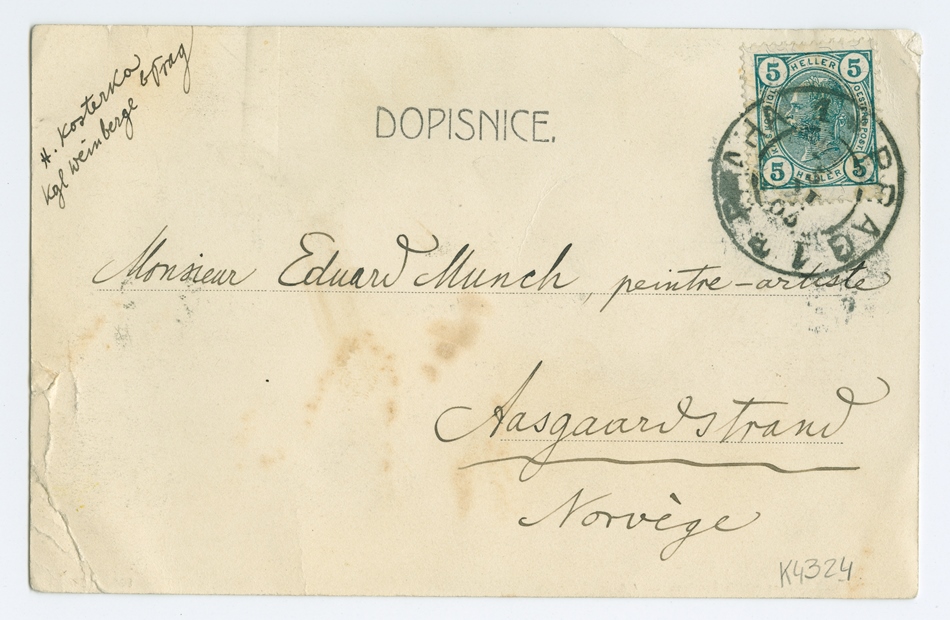 H. Kosterka
Kgl Weinberge b/Prag
DOPISNICE.
5 HELLER 5
5 HELLER 5
PRAG 1
PRAHA 1
Monsieur Eduard Munch, peintre-artiste
Aasgaardstrand
Norvège
K4324